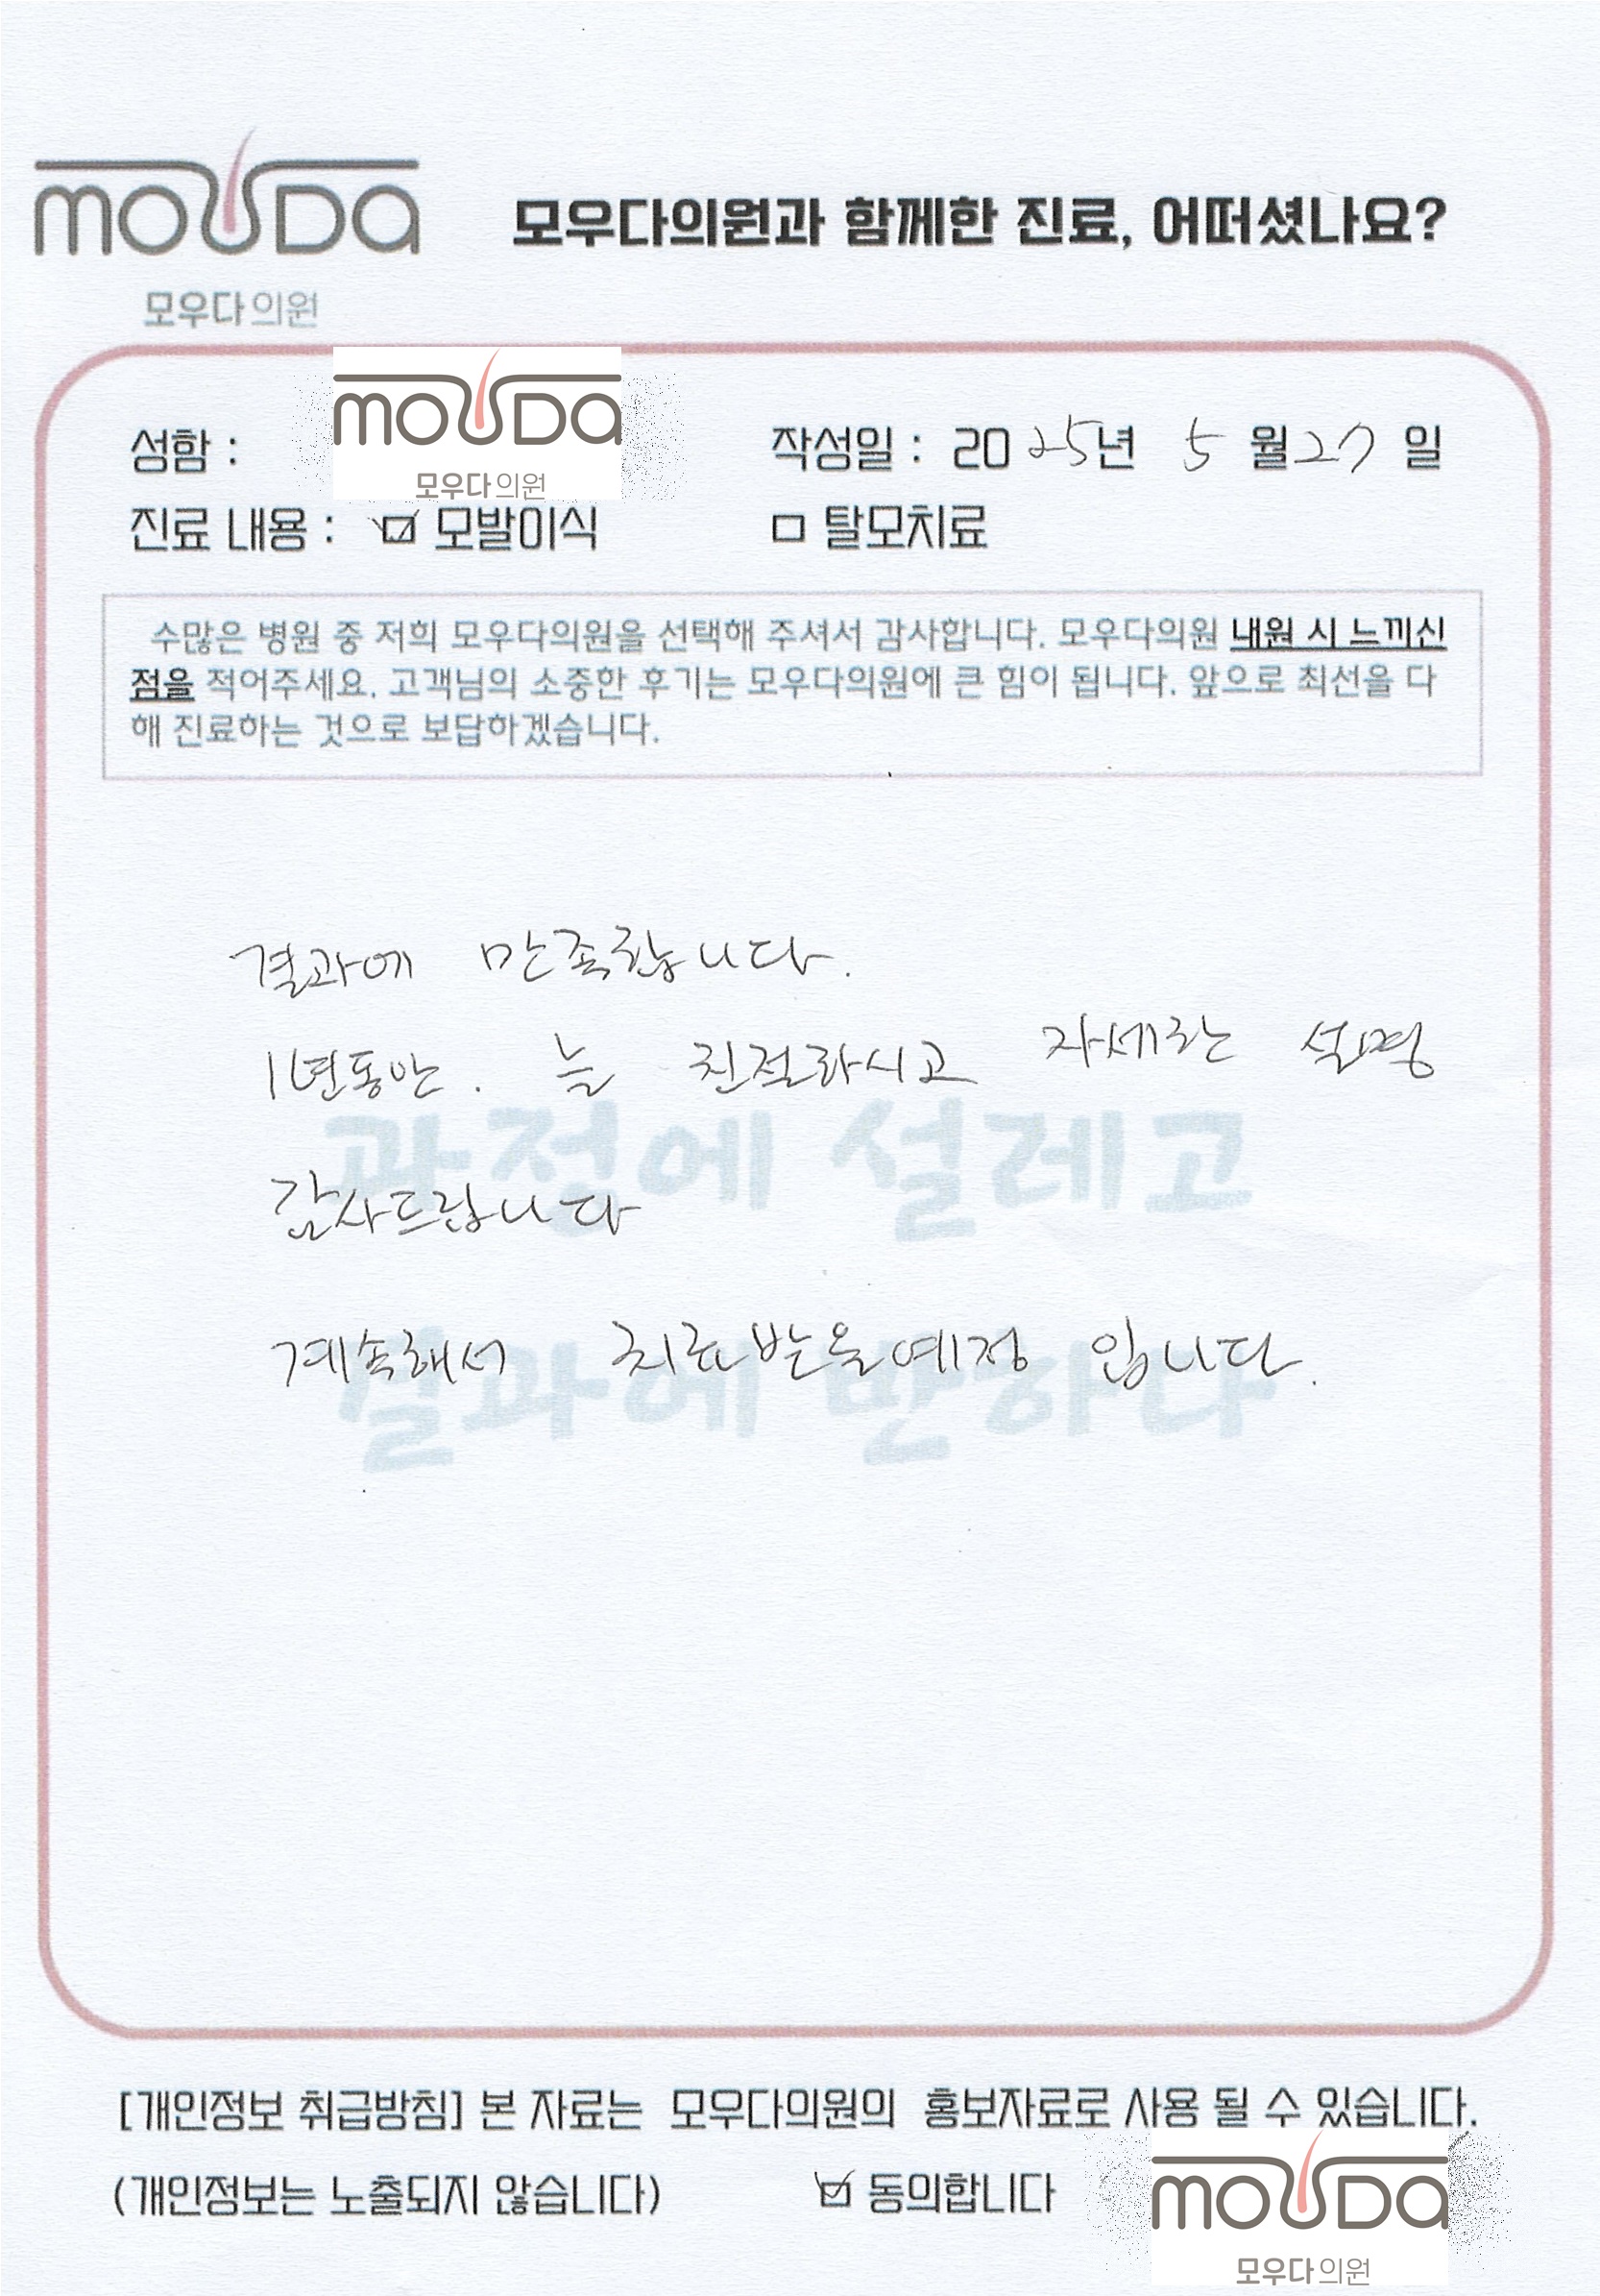 mouda
모우다의원
모우다의원과 함께한 진료, 어떠셨나요?
mouda
모우다의원
성함 :
작성일 : 2025년 5월 27일
진료 내용 : ☑ 모발이식 □ 탈모치료
수많은 병원 중 저희 모우다의원을 선택해 주셔서 감사합니다. 모우다의원 내원 시 느끼신
점을 적어주세요. 고객님의 소중한 후기는 모우다의원에 큰 힘이 됩니다. 앞으로 최선을 다
해 진료하는 것으로 보답하겠습니다.
결과에 만족합니다.
1년동안. 늘 친절하시고 자세한 설명
과정에 설레고
감사드립니다
계속해서 치료받을예정 입니다.
결과에 반하다
[개인정보 취급방침] 본 자료는 모우다의원의 홍보자료로 사용 될 수 있습니다.
(개인정보는 노출되지 않습니다) ☑ 동의합니다
mouda
모우다의원